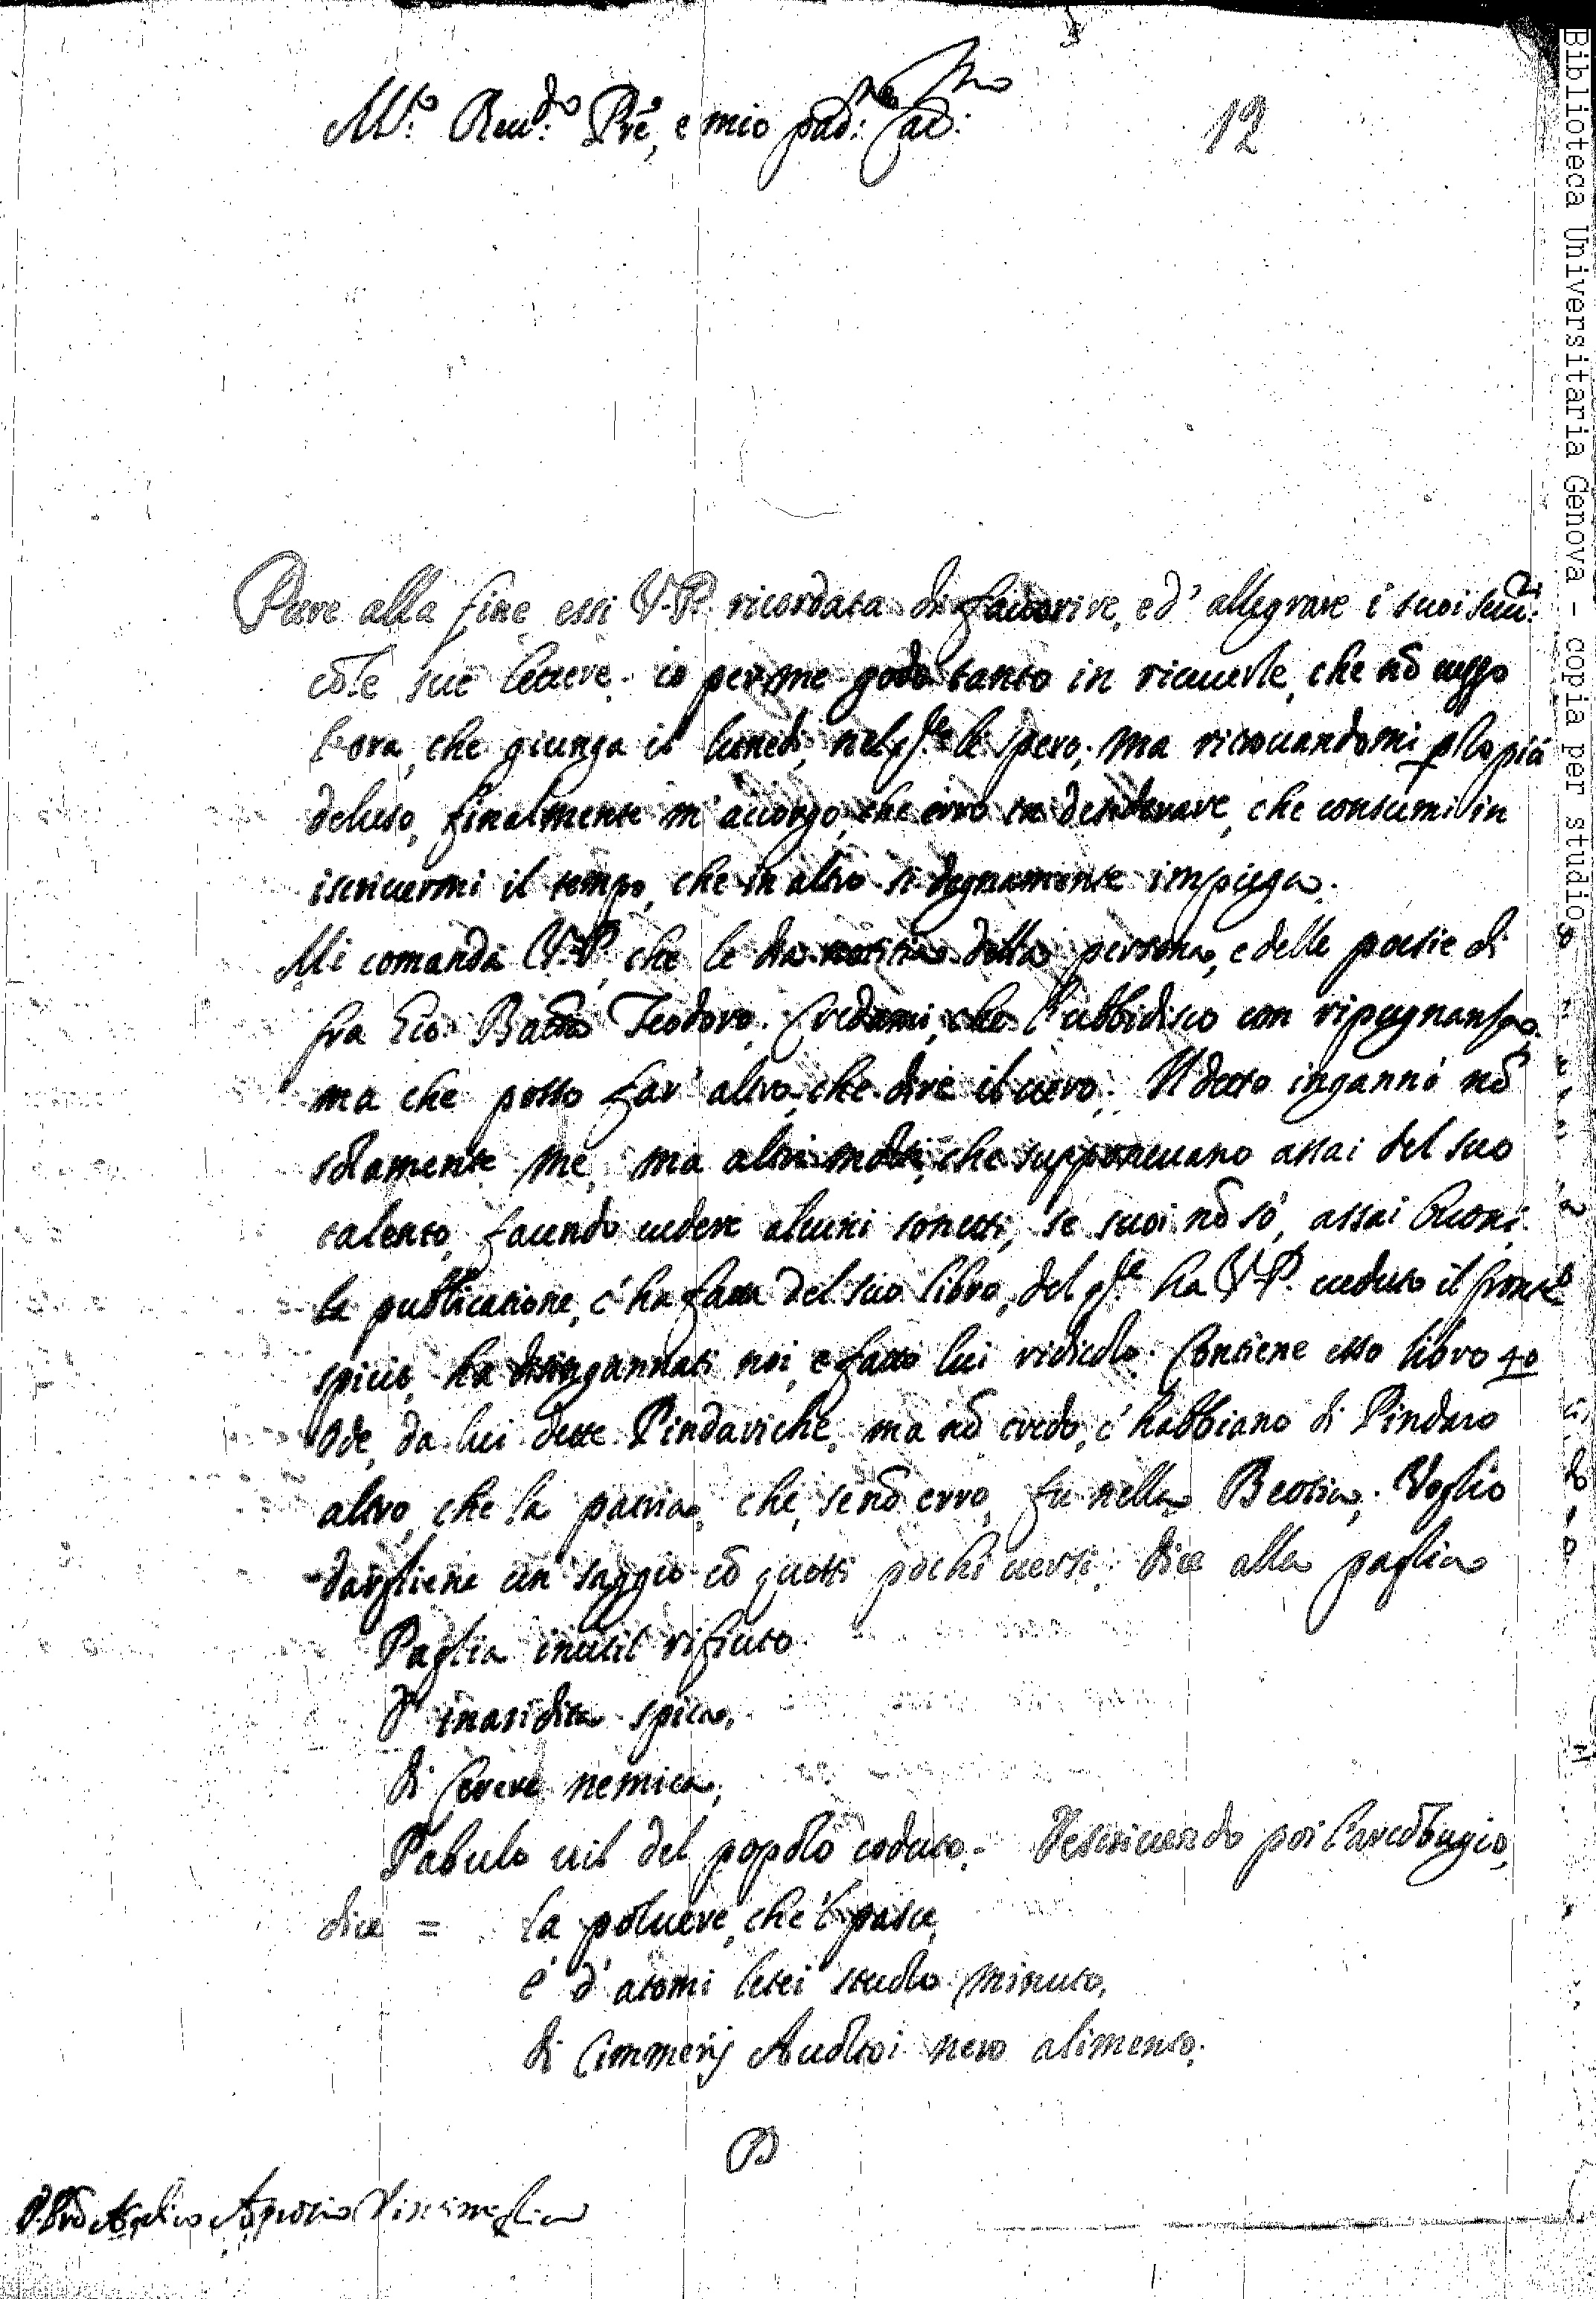 M.to Reu.do P̃re, e mio pad: ne Cad: mo
12
Pure alla fine essi V.P. ricordata di fauorire, ed' allegrare i suoi seru:ri
cõ le sue lettere. io per me godo tanto in riceuerle, che nõ ueggo
l'ora, che giunga il lunedi, nel q.le le spero; ma ritrouandomi p lo più
deluso, finalmente m'accorgo, che erro in desiderare, che consumi in
iscriuermi il tempo, che in altro si degnamente impiega.
Mi comanda V.P. che le dia notitia della persona, e delle poesie di
fra Gio: Batta Teodoro. Credami, che l'ubbidisco con ripugnanza,
ma che posso far' altro, che dire il uero. Il detto ingannò nõ
solamente me, ma altri molti, che supponeuano assai del suo
talento, facendo uedere alcuni sonetti, se suoi nõ sò, assai buoni.
la publicatione, c'ha fatta del suo libro, del q.le ha V.P. ueduto il fronte
spicio, ha disingannati noi, e fatto lui ridicolo. Contiene esso libro 40
Ode, da lui dette Pindariche, ma nõ credo, c'habbiano di Pindaro
altro, che la patria, che, se nõ erro, fu nella Beotia. Voglio
dargliene un saggio cõ questi pochi uersi. dice alla paglia
Paglia inutil rifiuto
D' inaridita spica,
di Cerere nemica,
Pabulo uil del popolo coduto. Descriuendo poi l'arcobugio,
dice = la poluere, che 'l pasce,
è d'atomi letei stuolo minuto,
di Cimmerij Auoltoi nero alimento.
P. Frõ Angelico Aprosio Vintimiglia
Biblioteca Universitaria Genova - copia per studio